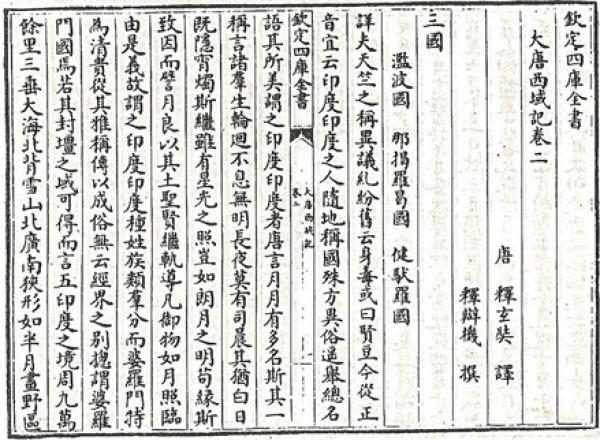 欽定四庫全書
大唐西域記卷二
唐 釋玄奘 譯
釋辯機 撰
三國
濫波國 那揭羅曷國 健馱羅國
詳夫天竺之稱異議糺紛舊云身毒或曰賢豆今從正
音宜云印度印度之人隨地稱國殊方異俗遙舉總名
語其所美謂之印度印度者唐言月月有多名斯其一
欽定四庫全書
大唐西域記
卷二
一
稱言諸羣生輪迴不息無明長夜莫有司晨其猶白日
既隱宵燭斯繼雖有星光之照豈如朗月之明苟緣斯
致因而譬月良以其土聖賢繼軌導凡御物如月照臨
由是義故謂之印度印度種姓族類羣分而婆羅門特
為清貴從其雅稱傳以成俗無云經界之別揔謂婆羅
門國焉若其封壃之域可得而言五印度之境周九萬
餘里三垂大海北背雪山北廣南狹形如半月畫野區